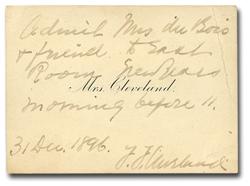 Admit Mrs du Bois
& friend to East
Room New Years
Mrs. Cleveland.
morning before 11.
31 Dec. 1896. F. F. Cleveland